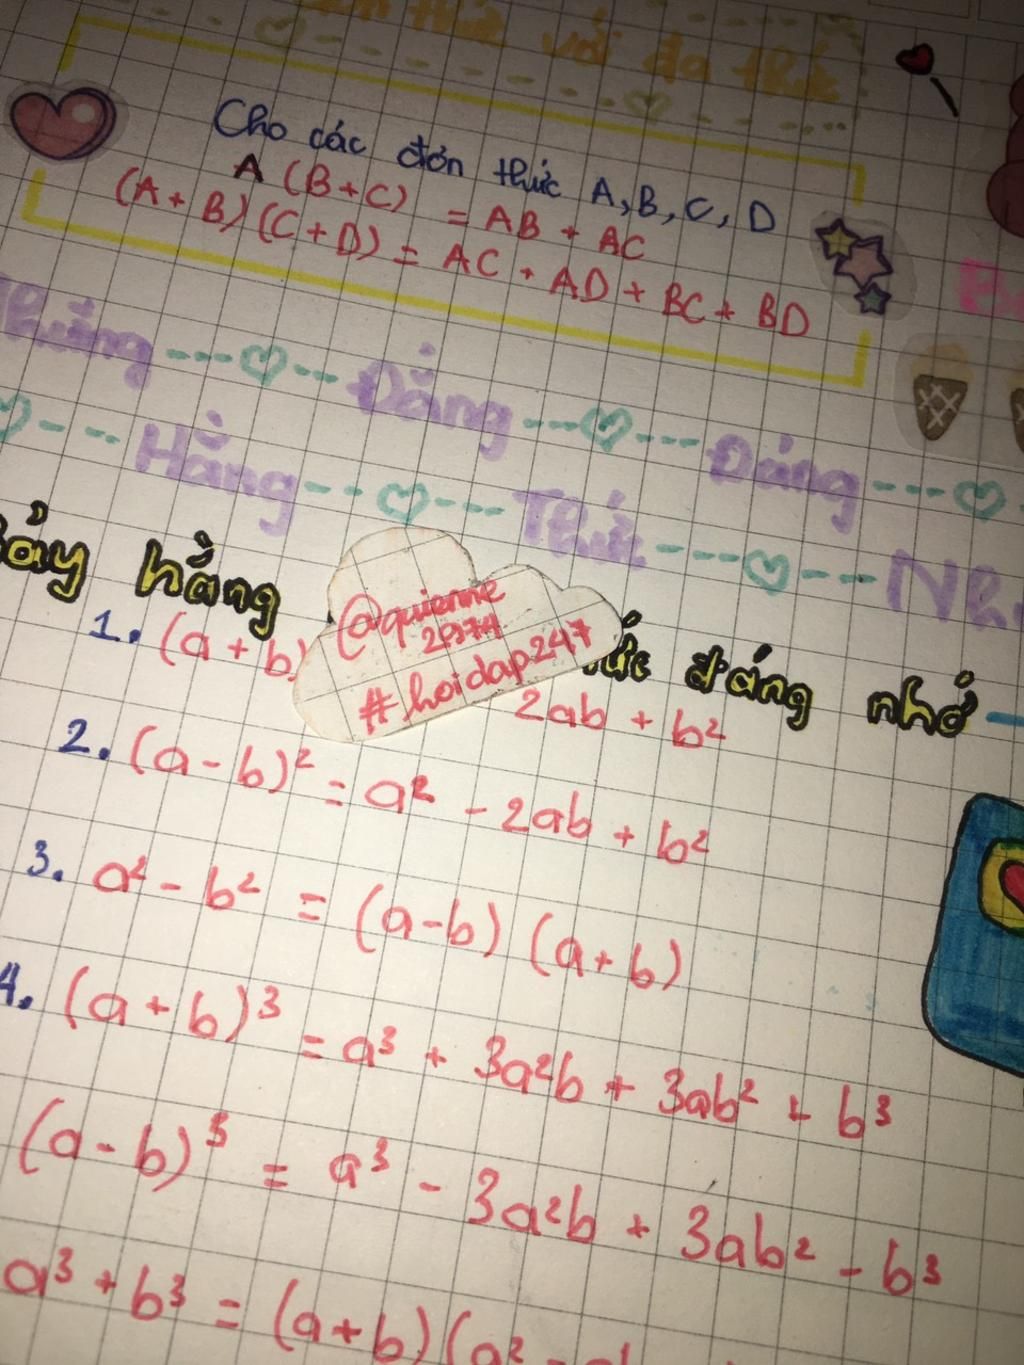 với đa thức
Cho các đơn thức A, B, C, D
A (B + C) = AB + AC
(A + B) (C + D) = AC + AD + BC + BD
Những Đẳng Đáng
Hằng Thức Nh
bảy hằng ức đáng nhớ
@quienne
#hoidap247
1. (a + b) 2ab + b²
2. (a - b)² = a² - 2ab + b²
3. a² - b² = (a - b) (a + b)
4. (a + b)³ = a³ + 3a²b + 3ab² + b³
(a - b)³ = a³ - 3a²b + 3ab² - b³
a³ + b³ = (a + b) (a² -